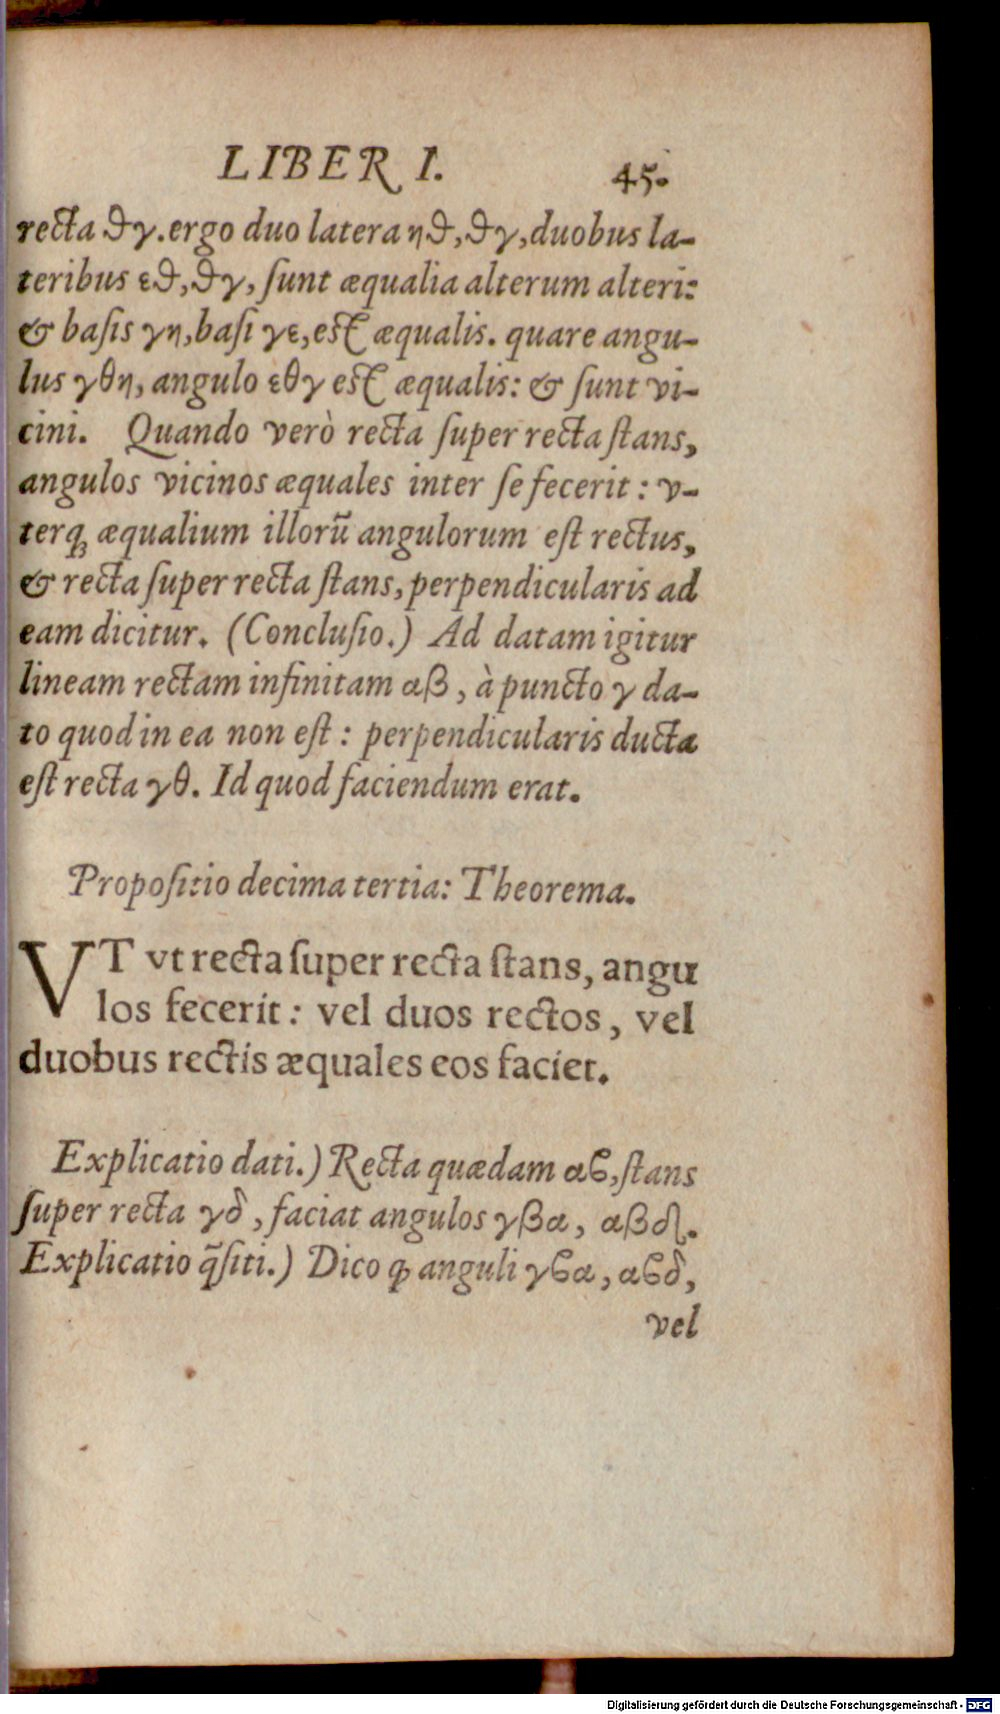 LIBER I. 45.
recta ϑγ. ergo duo latera ηϑ, ϑγ, duobus la-
teribus εϑ, ϑγ, ſunt æqualia alterum alteri:
& baſis γη, baſi γε, eſt æqualis. quare angu-
lus γθη, angulo εθγ eſt æqualis: & ſunt vi-
cini. Quando verò recta ſuper recta ſtans,
angulos vicinos æquales inter ſe fecerit: v-
terq́; æqualium illorũ angulorum eſt rectus,
& recta ſuper recta ſtans, perpendicularis ad
eam dicitur. (Concluſio.) Ad datam igitur
lineam rectam infinitam αβ, à puncto γ da-
to quod in ea non eſt: perpendicularis ducta
eſt recta γθ. Id quod faciendum erat.
Propoſitio decima tertia: Theorema.
VT vt recta ſuper recta ſtans, angu
los fecerit: vel duos rectos, vel
duobus rectis æquales eos faciet.
Explicatio dati.) Recta quædam αϐ, ſtans
ſuper recta γδ, faciat angulos γβα, αβδ.
Explicatio q̃ſiti.) Dico ꝙ anguli γϐα, αϐδ,
vel
Digitalisierung gefördert durch die Deutsche Forschungsgemeinschaft - DFG